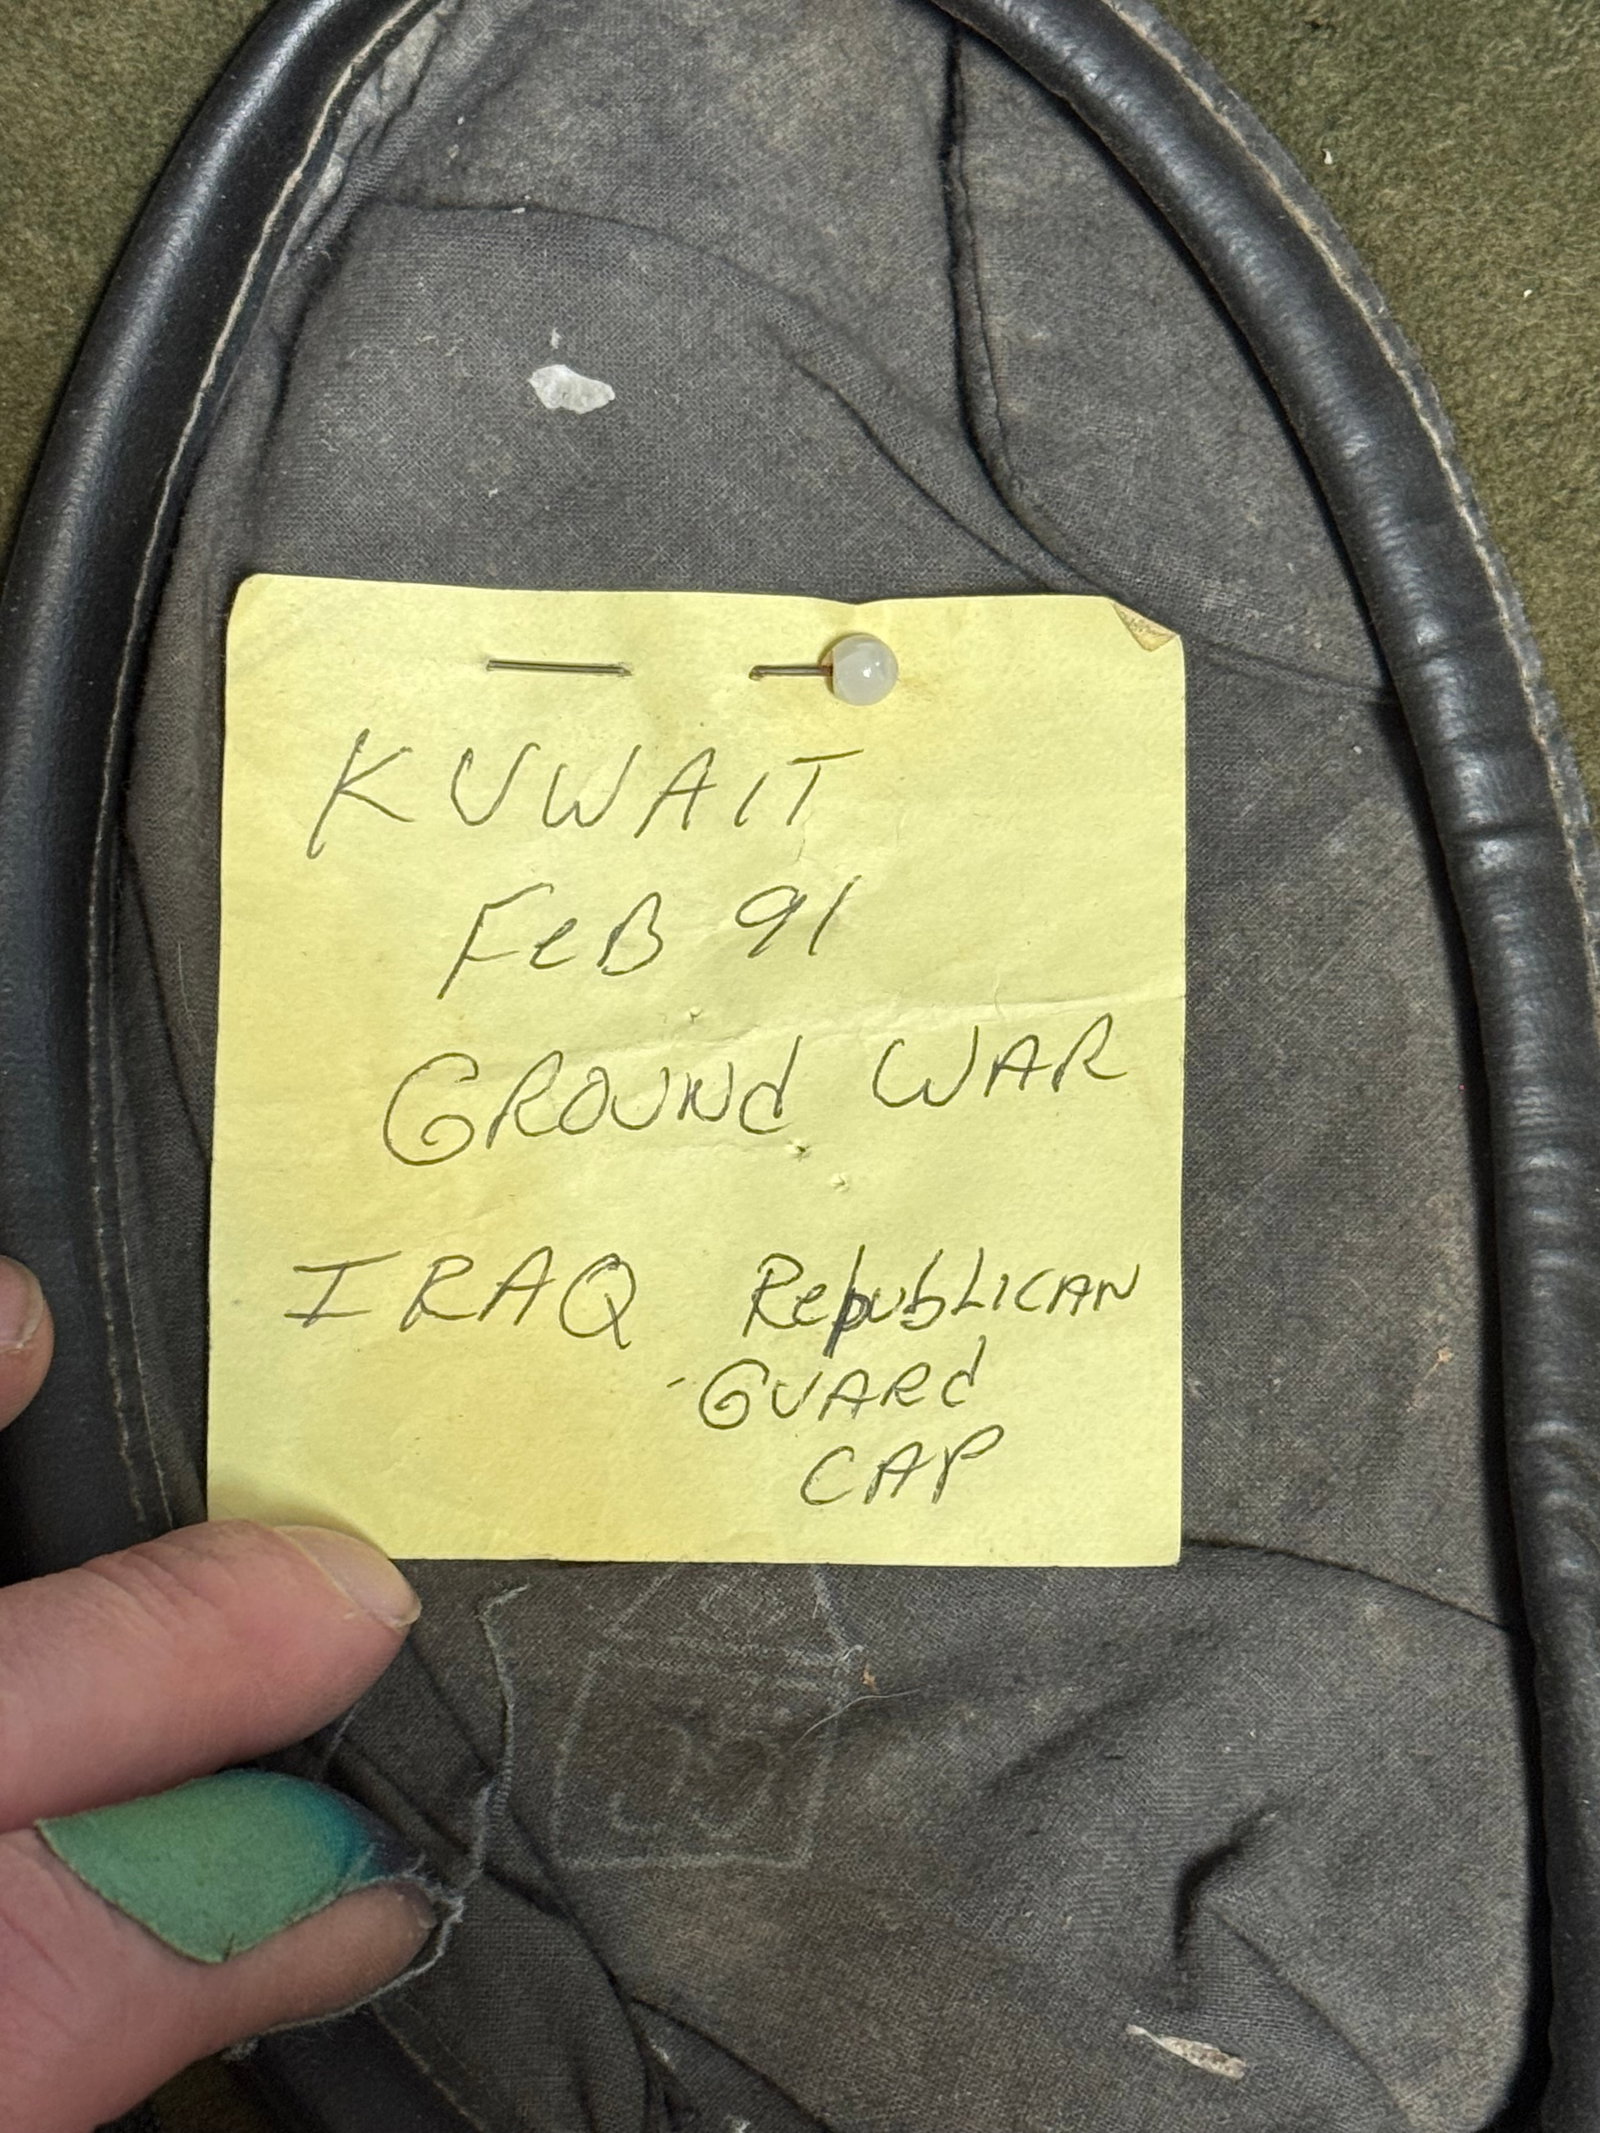 KUWAIT
FeB 91
GROUNd WAR
IRAQ RepubLICAN
-GUARd
CAP